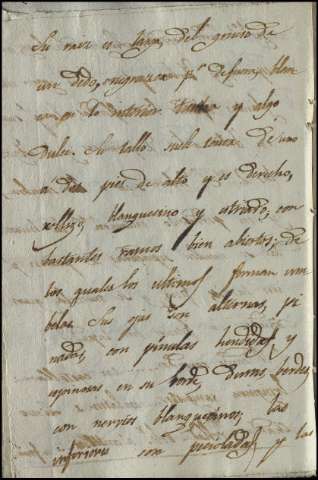 Su raiz es larga, del grueso de
un dedo, negruzca pr. defuera, blan
ca pr. lo interior tierna y algo
Dulce. Su tallo suele tener de uno
a dos pies de alto y es derecho,
rollizo, blanquecino y estriado, con
bastantes ramos bien abiertos; de
los quales los ultimos forman um
belas. Sus ojas son alternas, pi
nadas, con pinulas hendidas y
espinosas en su borde, duras, berdes,
con nervios blanquecinos; las
inferiores son pecioladas y las